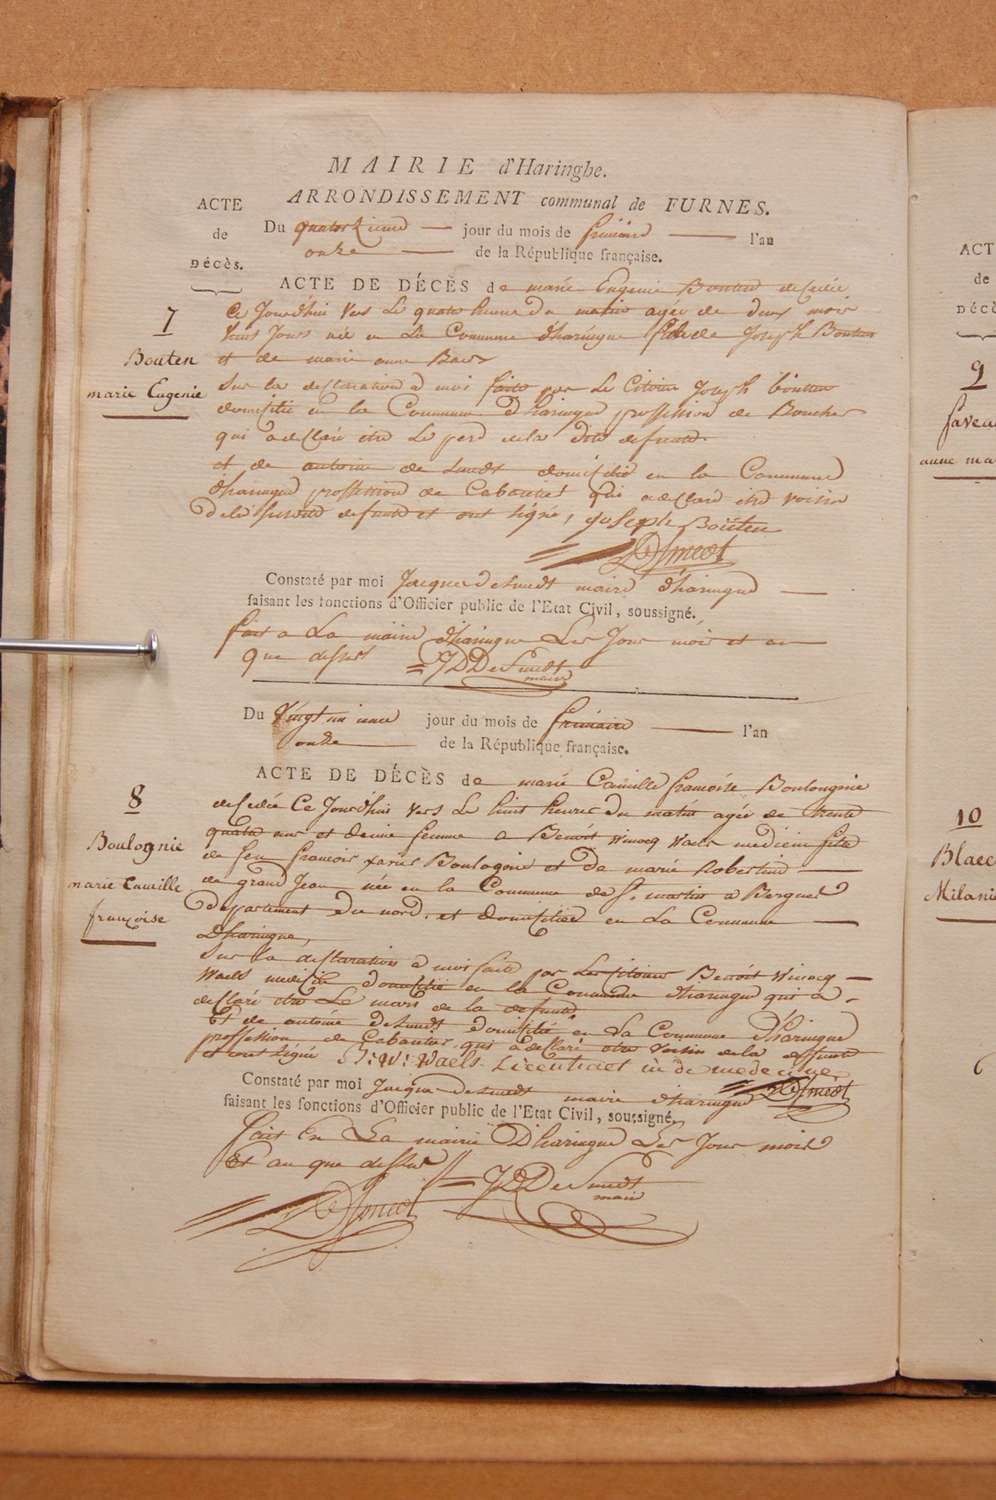 MAIRIE d'Haringhe.
ARRONDISSEMENT communal de FURNES.
ACTE
de
DÉCÈS.
Du quatorzieme jour du mois de frimaire l'an
onze de la République française.
7
Bouten
marie Eugenie
ACTE DE DÉCÈS de marie Eugenie Bouten decedée
Ce Jourdhui vers Le quatre heure du matin agée de deux mois
vint Jours née en La Commune dharingue fille de Joseph Bouten
et de marie anne Baes
Sur la desclaration a moi faite par Le Citoien Joseph bouten
domicilié en la Commune Dharingue proffession de Boucher
qui a desclaré etre Le pere de la dite defunte.
et de antoine de Smedt domicilié en la Commune
dharingue proffession de Cabartier qui a desclaré etre voisin
de la defunte et ont signé, joseph Boúten
DeSmedt
Constaté par moi Jacque deSmedt maire dharingue
faisant les fonctions d'Officier public de l'Etat Civil, soussigné.
fait a La mairie dharingue Les Jour mois et an
que dessus JDDeSmedt
maire
Du vingt un ieme jour du mois de frimaire l'an
onze de la République française.
8
Boulognie
marie Camille
françoise
ACTE DE DÉCÈS de marie Camille francoise Boulougnie
decedée Ce Jourdhui vers Le huit heures du matin agée de trente
quatre ans et demie femme a Benoit winocq waels medicin fille
de feu francois xavier Boulogne et de marie Robertine
de grand Jean née en la Commune de St. martin a Bergues
Departement du nord, et domiciliée en La Commune
Dharingue,
Sur La desclaration a moi faite par Les citoiens Benoit winocq
waels medicin domicilié en la Commune dharingue qui a
desclaré etre Le mari de la defunte,
Et de antoine deSmedt domicilié en La Commune Dharingue
proffession de Cabartier qui a desclaré etre voisin de la deffunte
et ont signé B: W: Waels Licentiet in de medecine
DeSmedt
Constaté par moi Jacque deSmedt maire dharingue
faisant les fonctions d'Officier public de l'Etat Civil, soussigné.
fait En La mairie Dharingue Les Jour mois
Et an que dessus JDDeSmedt
maire
DeSmedt
ACT
de
DÉC
9
faveu
anne ma
10
Blaec
Milani